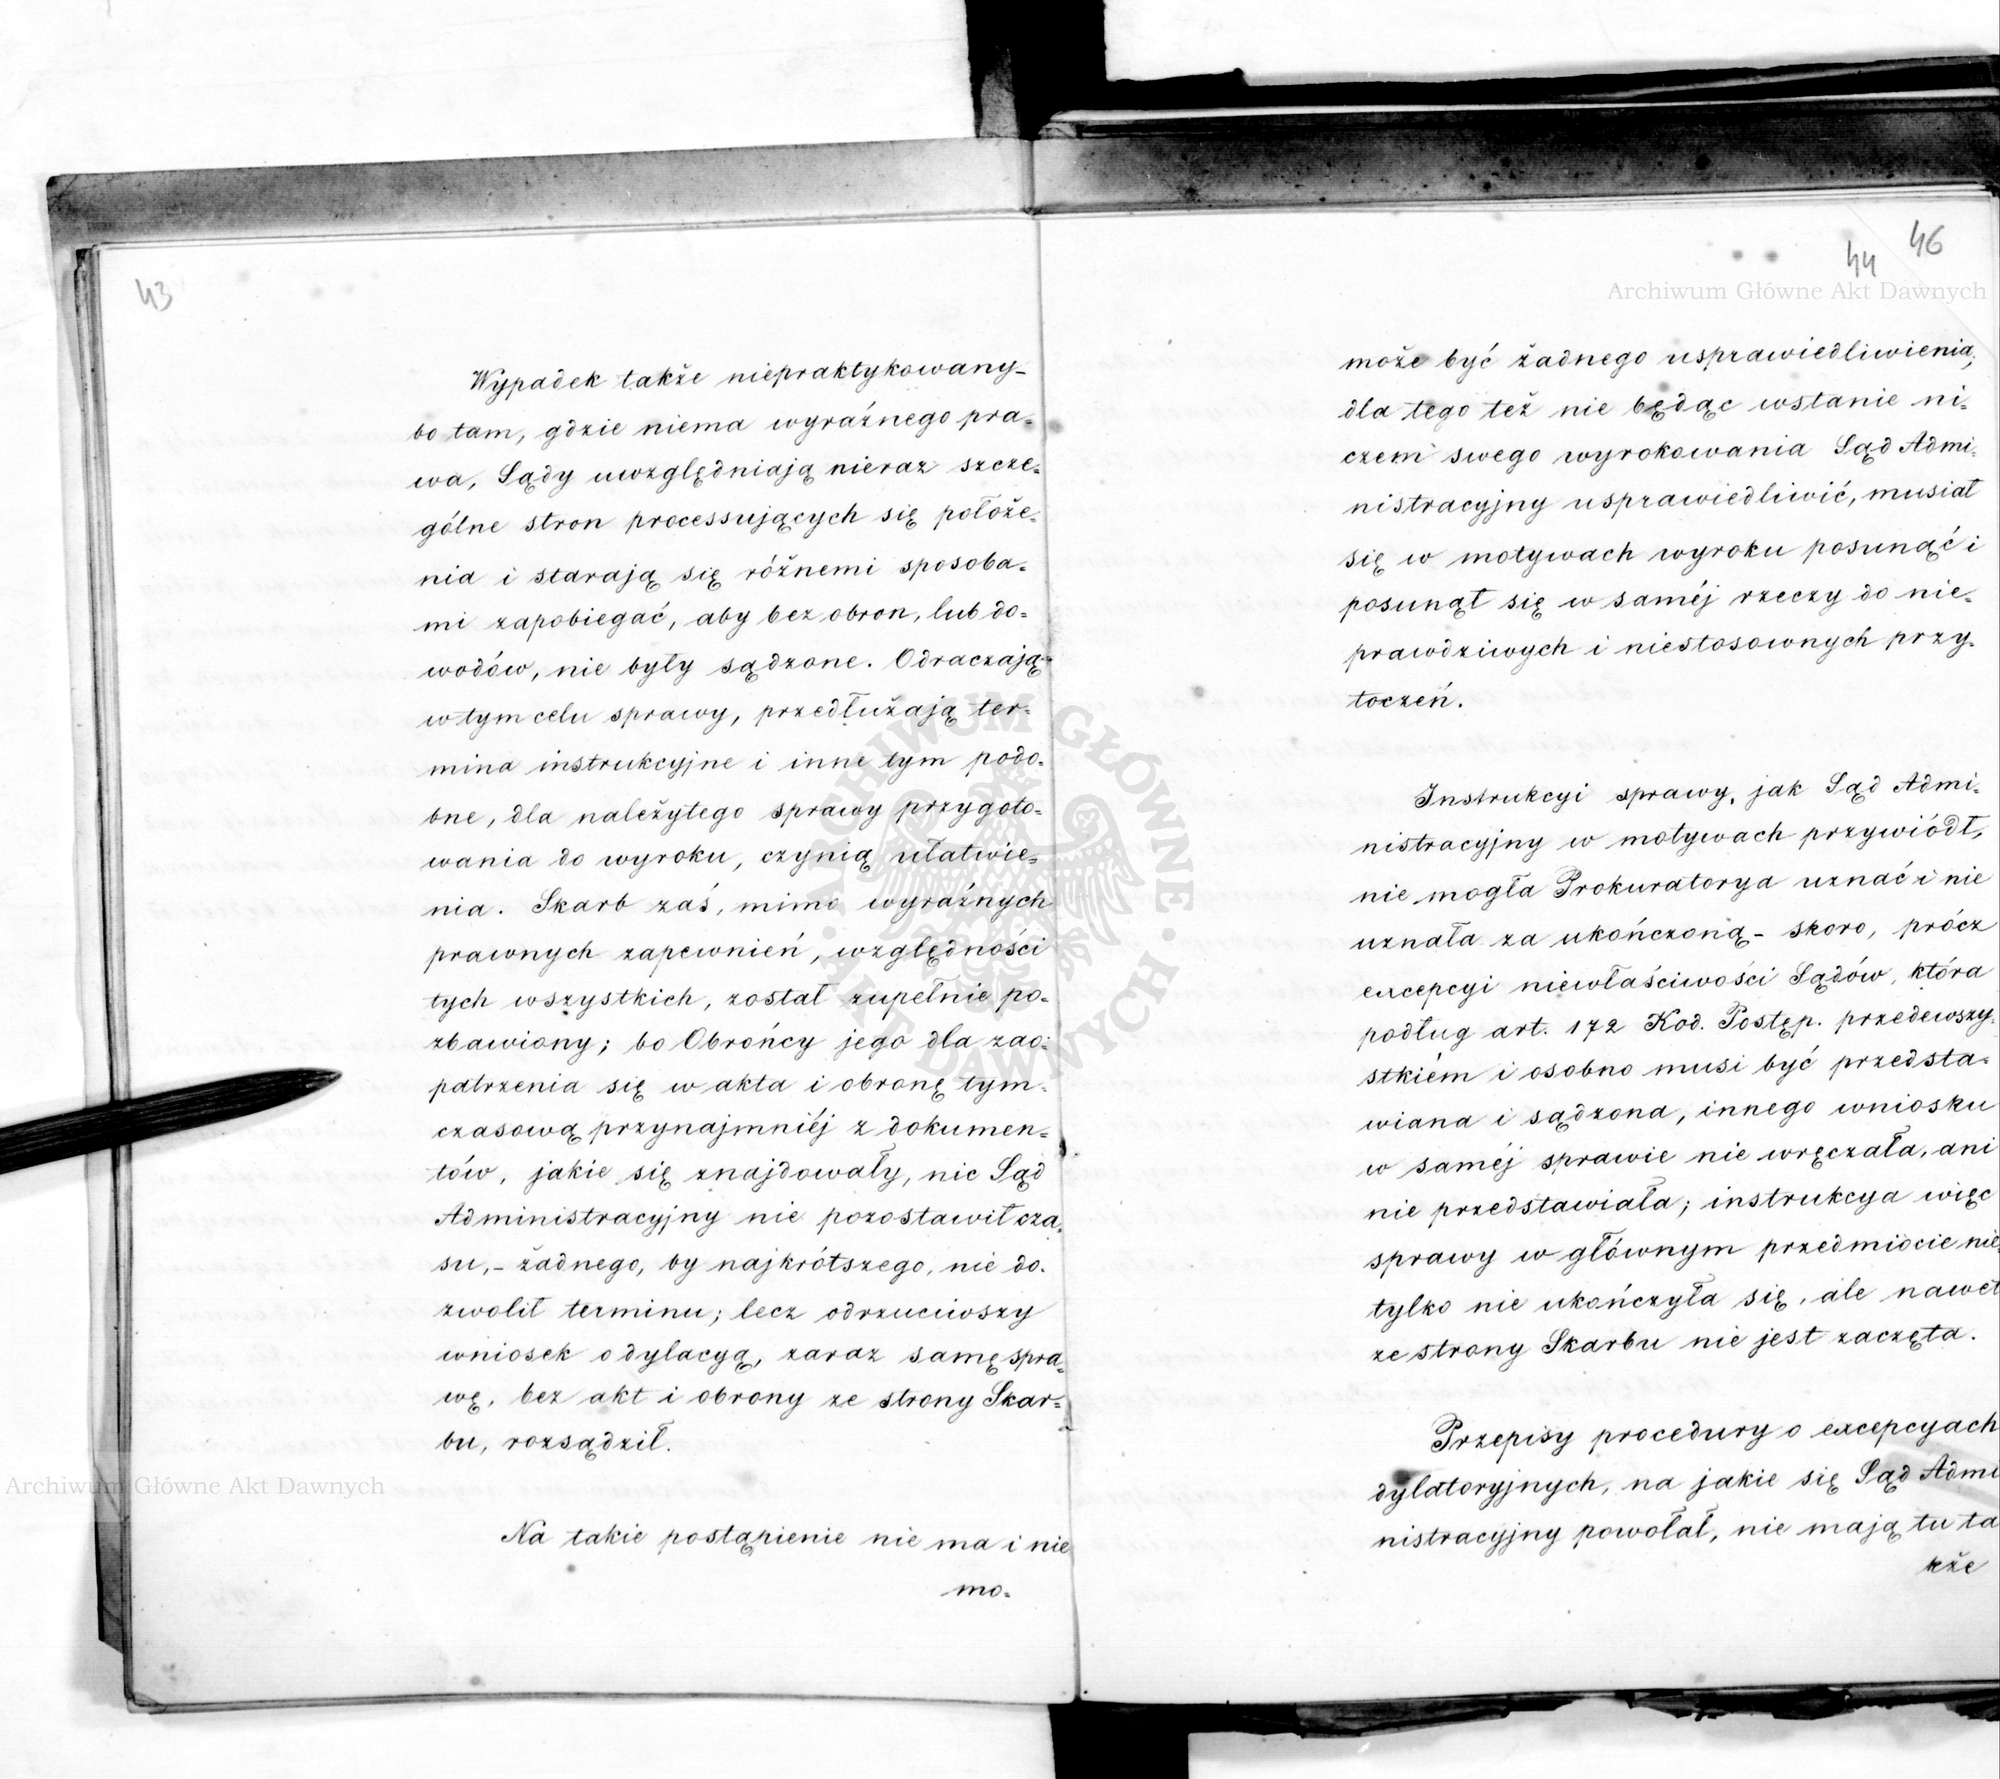 43
Wypadek także niepraktykowany-
bo tam, gdzie niema wyraźnego pra-
wa, Sądy uwzględniają nieraz szcze-
gólne stron processujących się położe-
nia i starają się różnemi sposoba-
mi zapobiegać, aby bez obron, lub do-
wodów, nie były sądzone. Odraczają
w tym celu sprawy, przedłużają ter-
mina instrukcyjne i inne tym podo-
bne, dla należytego sprawy przygoto-
wania do wyroku, czynią ułatwie-
nia. Skarb zaś, mimo wyraźnych
prawnych zapewnień, względności
tych wszystkich, został zupełnie po-
zbawiony; bo Obrońcy jego dla zao-
patrzenia się w akta i obronę tym-
czasową przynajmniéj z dokumen-
tów, jakie się znajdowały, nic Sąd
Administracyjny nie pozostawił cza-
su,- żadnego, by najkrótszego, nie do-
zwolił terminu; lecz odrzuciwszy
wniosek o dylacyą, zaraz samę spra-
wę, bez akt i obrony ze strony Skar-
bu, rozsądził.
Na takie postąpienie nie ma i nie
mo-
44 46
Archiwum Główne Akt Dawnych
może być żadnego usprawiedliwienia;
dla tego też nie będąc wstanie ni-
czem swego wyrokowania Sąd Admi-
nistracyjny usprawiedliwić, musiał
się w motywach wyroku posunąć i
posunął się w saméj rzeczy do nie-
prawdziwych i niestosownych przy-
toczeń.
Instrukcyi sprawy, jak Sąd Admi-
nistracyjny w motywach przywiódł,
nie mogła Prokuratorya uznać i nie
uznała za ukończoną - skoro, prócz
excepcyi niewłaściwości Sądów, która
podług art. 172 Kod. Postęp. przedewszy-
stkiém i osobno musi być przedsta-
wiana i sądzona, innego wniosku
w saméj sprawie nie wręczała, ani
nie przedstawiała; instrukcya więc
sprawy w głównym przedmiocie nie-
tylko nie ukończyła się, ale nawet
ze strony Skarbu nie jest zaczęta.
Przepisy procedury o excepcyach
dylatoryjnych, na jakie się Sąd Admi
nistracyjny powołał, nie mają tu ta
kże
Archiwum Główne Akt Dawnych
ARCHIWUM GŁÓWNE AKT DAWNYCH